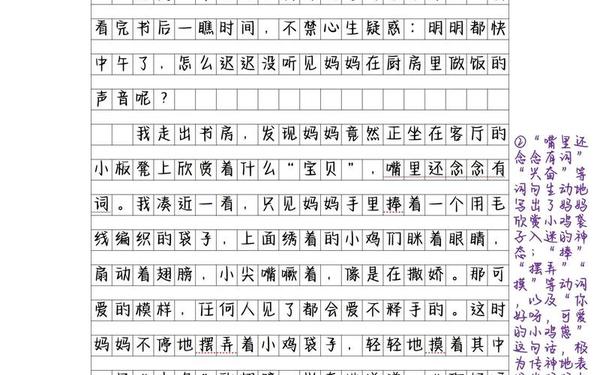 看完书后一瞧时间，不禁心生疑惑：明明都快
中午了，怎么迟迟没听见妈妈在厨房里做饭的
声音呢？
我走出书房，发现妈妈竟然正坐在客厅的
小板凳上欣赏着什么“宝贝”，嘴里还念念有
词。我凑近一看，只见妈妈手里捧着一个用毛
线编织的袋子，上面绣着的小鸡们眯着眼睛，
扇动着翅膀，小尖嘴噘着，像是在撒娇。那可
爱的模样，任何人见了都会爱不释手的。这时
妈妈不停地摆弄着小鸡袋子，轻轻地摸着其中
②“嘴里还
念念有词”
“兴奋”等
词句生动地
写出了妈妈
欣赏小鸡袋
子入迷的神
态；“捧”
“摆弄”“
摸”等动词
，以及“你
好呀，可爱
的小鸡崽”
这句话，极
为传神地表